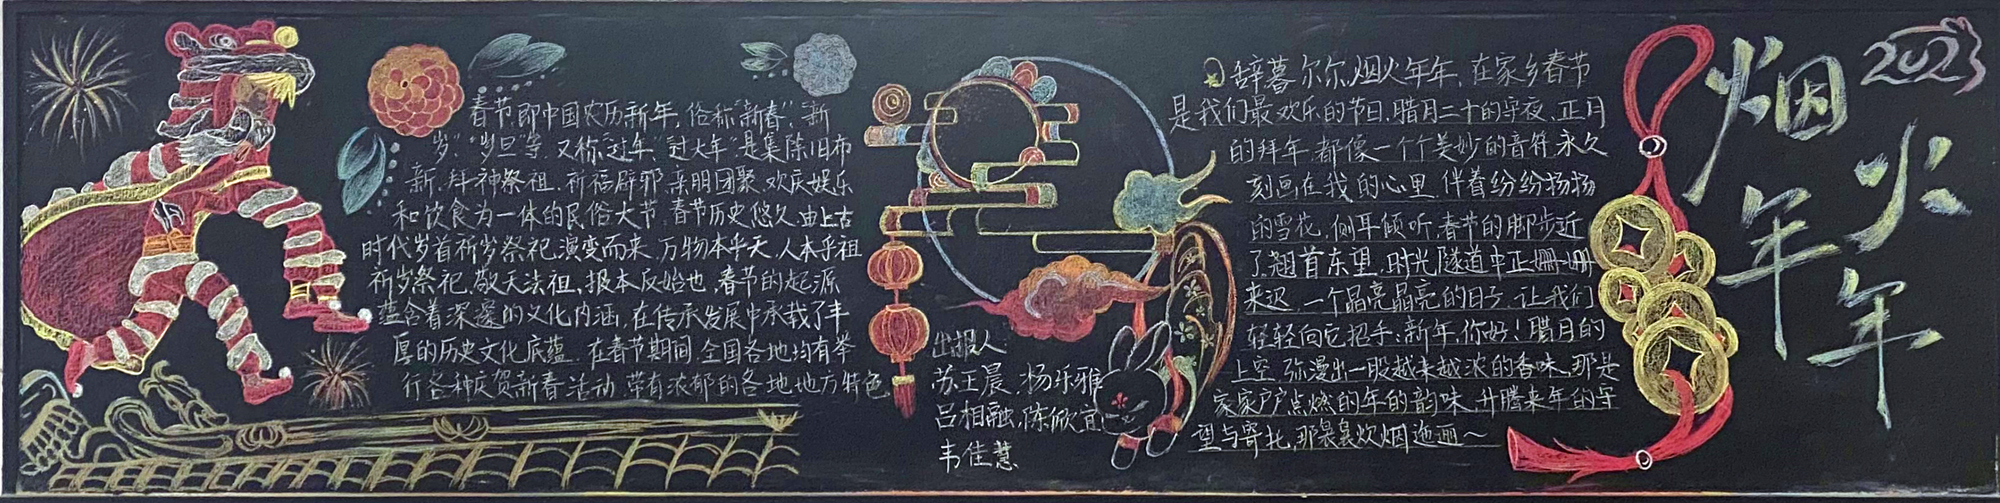 春节即中国农历新年，俗称“新春”、“新
岁”、“岁旦”等，又称“过年”、“过大年”是集除旧布
新、拜神祭祖、祈福辟邪、亲朋团聚、欢庆娱乐
和饮食为一体的民俗大节。春节历史悠久，由上古
时代岁首祈岁祭祀演变而来，万物本乎天，人本乎祖
祈岁祭祀、敬天法祖，报本反始也，春节的起源
蕴含着深邃的文化内涵，在传承发展中承载了丰
厚的历史文化底蕴。在春节期间，全国各地均有举
行各种庆贺新春活动，带有浓郁的各地地方特色
出报人
苏王晨、杨乐雅
吕相融、陈欣宜
韦佳慧
辞暮尔尔，烟火年年，在家乡春节
是我们最欢乐的节日，腊月二十的守夜、正月
的拜年，都像一个个美妙的音符，永久
刻画在我的心里，伴着纷纷扬扬
的雪花，侧耳倾听，春节的脚步近
了，翘首东望，时光隧道中正姗姗
来迟，一个晶亮晶亮的日子，让我们
轻轻向它招手：新年，你好！腊月的
上空，弥漫出一股越来越浓的香味，那是
家家户户点燃的年的韵味，升腾来年的守
望与寄托，那袅袅炊烟迤逦～
烟火
年年
2023